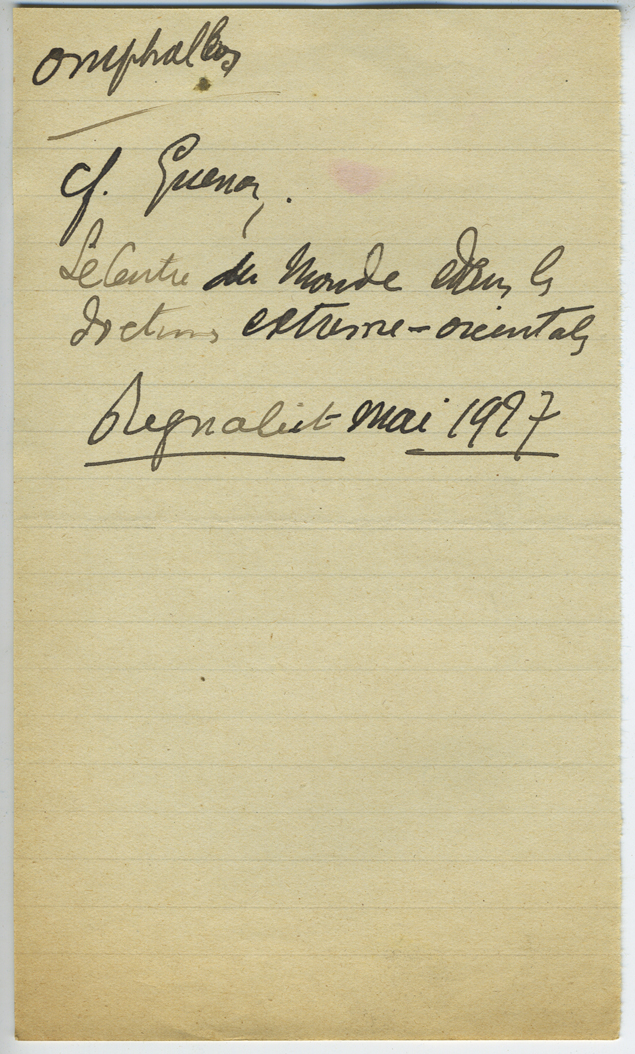 omphallos
cf. Guenon,.
Le Centre du Monde dans les
doctrines extreme-orientales
Regnabit mai 1927